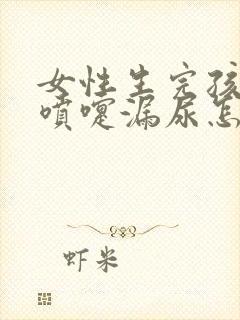 女性生完孩
喷嚏漏尿怎
虾米